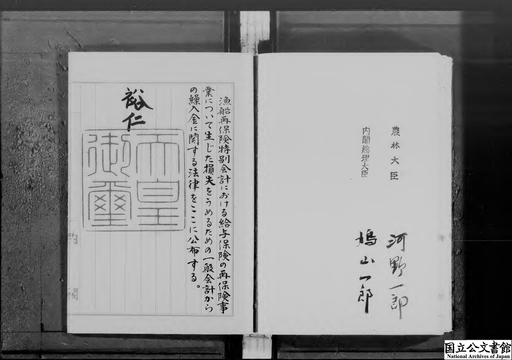 農林大臣
河野一郎
内閣総理大臣
鳩山一郎
漁船再保険特別会計における給与保険の再保険事
業について生じた損失をうめるための一般会計から
の繰入金に関する法律をここに公布する。
裕仁
天皇
御璽
国立公文書館
National Archives of Japan